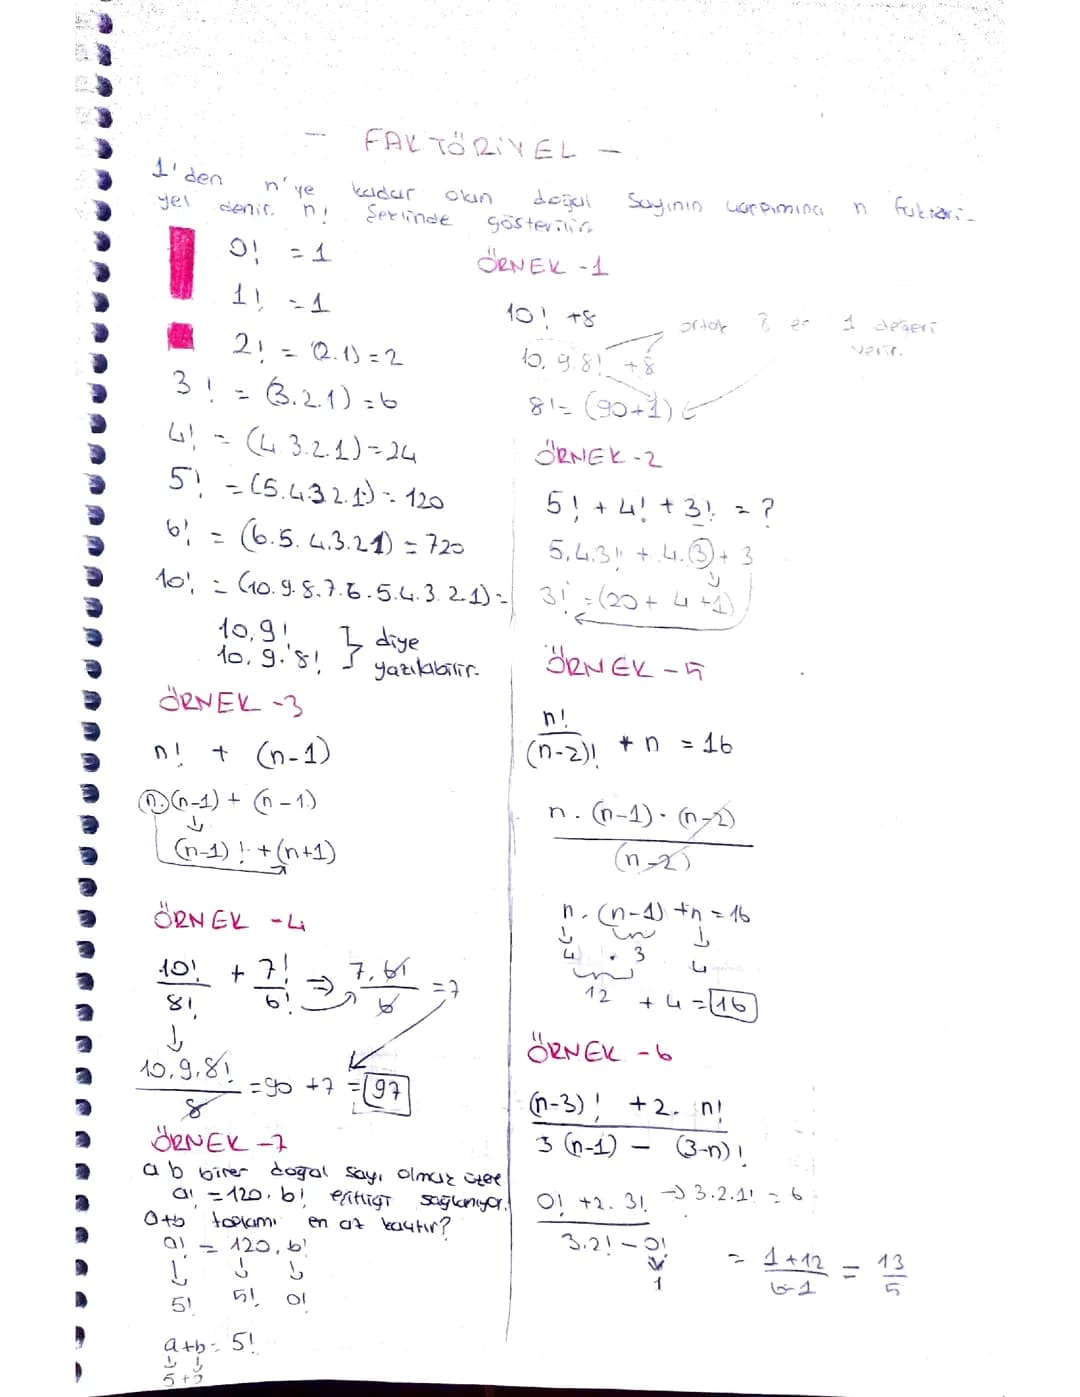 - FAKTÖRİYEL -
1'den n'ye kadar olan doğal sayının çarpımına n faktöri-
yel denir. n! şeklinde gösterilir.
0! = 1
1! = 1
2! = (2.1) = 2
3! = (3.2.1) = 6
4! = (4 3.2.1) = 24
5! = (5.4.3 2.1) = 120
6! = (6.5.4.3.2 1) = 720
10! = (10.9.8.7.6.5.4.3.2.1) =
10.9!
10.9.8! } diye yazılabilir.
ÖRNEK -1
10! +8
10.9.8! +8
ortak 1 değeri
verir.
8! = (90+1)
ÖRNEK -2
5! + 4! + 3! = ?
5.4.3! + 4.3 + 3
3! = (20 + 4 +1)
ÖRNEK -3
n! + (n-1)
n.(n-1) + (n-1)
(n-1)! + (n+1)
ÖRNEK -4
10!/8! + 7!/6! ⇒ 7.6!/6 = 7
10.9.8!/8 = 90 +7 = 97
ÖRNEK -5
n!/(n-2)! + n = 16
n.(n-1).(n-2)
(n-2)
n.(n-1) +n = 16
4 . 3 4
12 + 4 = 16
ÖRNEK -6
(n-3)! +2. n!
3(n-1) - (3-n)!
0! +2. 3! → 3.2.1! = 6
3.2! - 0!
1
= 1+12/6-1 = 13/5
ÖRNEK -7
a b birer doğal sayı olmak üzere
a! = 120. b! eşitliği sağlanıyor.
a+b toplamı en az kaçtır?
a! = 120. b!
5! 5! 0!
a+b = 5!